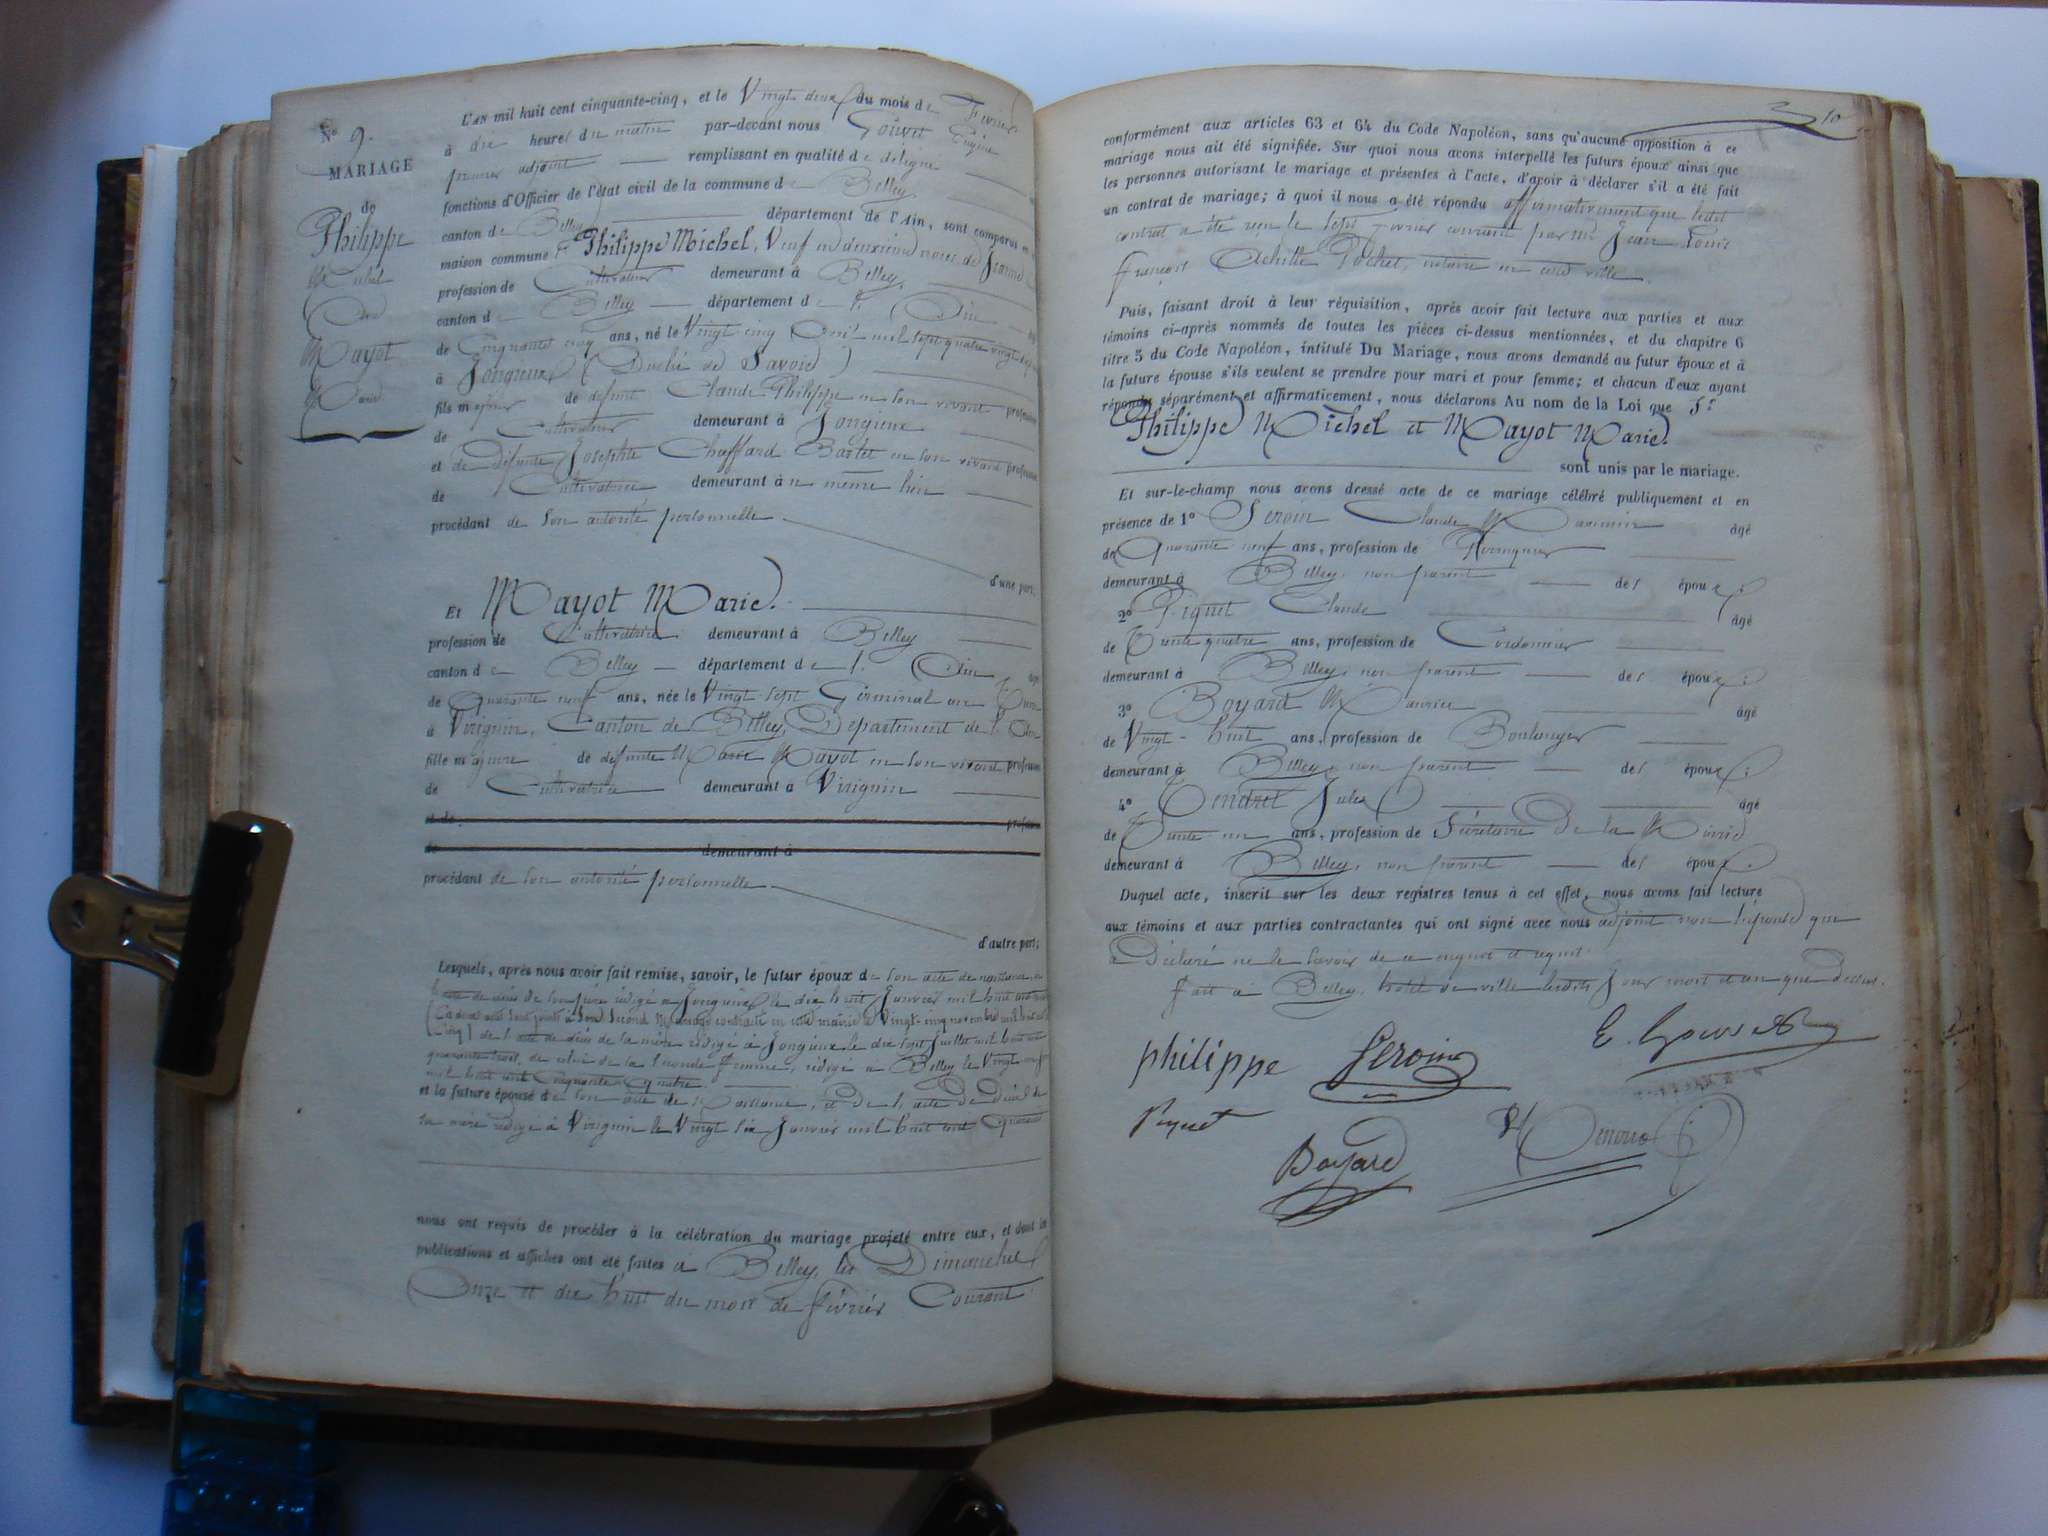 N° 9.
MARIAGE
de
Philippe
Michel
Mayot
Marie.
L'AN mil huit cent cinquante-cinq, et le Vingt deux du mois de Février
à dix heures du matin par-devant nous Gouvet Eugène
premier adjoint remplissant en qualité de délégué
fonctions d'Officier de l'état civil de la commune de Belley
canton de Belley département de l'Ain, sont comparus en
maison commune Philippe Michel, Veuf en deuxième noces de Jeanne
profession de Cultivateur demeurant à Belley,
canton de Belley département de l'Ain
de Cinquante cinq ans, né le Vingt cinq mil sept quatre vingt
à Jongieux (Duché de Savoie)
fils majeur de défunt Claude Philippe en son vivant profession
de Cultivateur demeurant à Jongieux
et de défunte Josephte Chaffard Bartet en son vivant profession
de Cultivatrice demeurant à même lieu
procédant de son autorité personnelle
d'une part,
Et Mayot Marie.
profession de Cultivatrice demeurant à Belley
canton de Belley département de l'Ain
de Quarante neuf ans, née le Vingt sept Germinal an
à Virignin, Canton de Belley, Département de l'Ain
fille majeure de défunte Marie Mayot en son vivant profession
de Cultivatrice demeurant à Virignin
et de profession
de demeurant à
procédant de son autorité personnelle
d'autre part;
Lesquels, après nous avoir fait remise, savoir, le futur époux de son acte de naissance,
l'acte de décès de son père rédigé à Jongieux le dix huit Janvier mil huit cent
second Mariage contracté en cette mairie le Vingt-cinq novembre mil huit cent
cinq) de l'acte de décès de la mère rédigé à Jongieux le dix sept Juillet mil huit cent
quarante trois, de celui de la seconde femme, rédigé à Belley le Vingt
mil huit cent Cinquante quatre
et la future épouse de son acte de Naissance, et de l'acte de Décès de
sa mère rédigé à Virignin le Vingt six Janvier mil huit cent
nous ont requis de procéder à la célébration du mariage projeté entre eux, et dont les
publications et affiches ont été faites à Belley, les Dimanches
Onze et dix huit du mois de février Courant.
10
conformément aux articles 63 et 64 du Code Napoléon, sans qu'aucune opposition à ce
mariage nous ait été signifiée. Sur quoi nous avons interpellé les futurs époux ainsi que
les personnes autorisant le mariage et présentes à l'acte, d'avoir à déclarer s'il a été fait
un contrat de mariage; à quoi il nous a été répondu affirmativement que ledit
contrat a été reçu le sept février courant par Me Jean Louis
françois Achille Pochet, notaire en cette ville.
Puis, faisant droit à leur réquisition, après avoir fait lecture aux parties et aux
témoins ci-après nommés de toutes les pièces ci-dessus mentionnées, et du chapitre 6
titre 5 du Code Napoléon, intitulé Du Mariage, nous avons demandé au futur époux et à
la future épouse s'ils veulent se prendre pour mari et pour femme; et chacun d'eux ayant
répondu séparément et affirmativement, nous déclarons Au nom de la Loi que
Philippe Michel et Mayot Marie.
sont unis par le mariage.
Et sur-le-champ nous avons dressé acte de ce mariage célébré publiquement et en
présence de 1° Seroin Claude âgé
de Quarante neuf ans, profession de Perruquier
demeurant à Belley, non parent des époux;
2° Piquet Claude âgé
de Trente quatre ans, profession de Cordonnier
demeurant à Belley, non parent des époux;
3° Boyard Maurice âgé
de Vingt-huit ans, profession de Boulanger
demeurant à Belley, non parent des époux;
4° Jules âgé
de Trente un ans, profession de Sécrétaire de la Mairie
demeurant à Belley, non parent des époux.
Duquel acte, inscrit sur les deux registres tenus à cet effet, nous avons fait lecture
aux témoins et aux parties contractantes qui ont signé avec nous adjoint non l'épouse qui
a Déclaré ne le savoir de ce enquis et requis.
fait à Belley, hotel de ville lesdits Jour mois et an que dessus.
philippe Seroin E. Gouvet
Piquet
Boyard